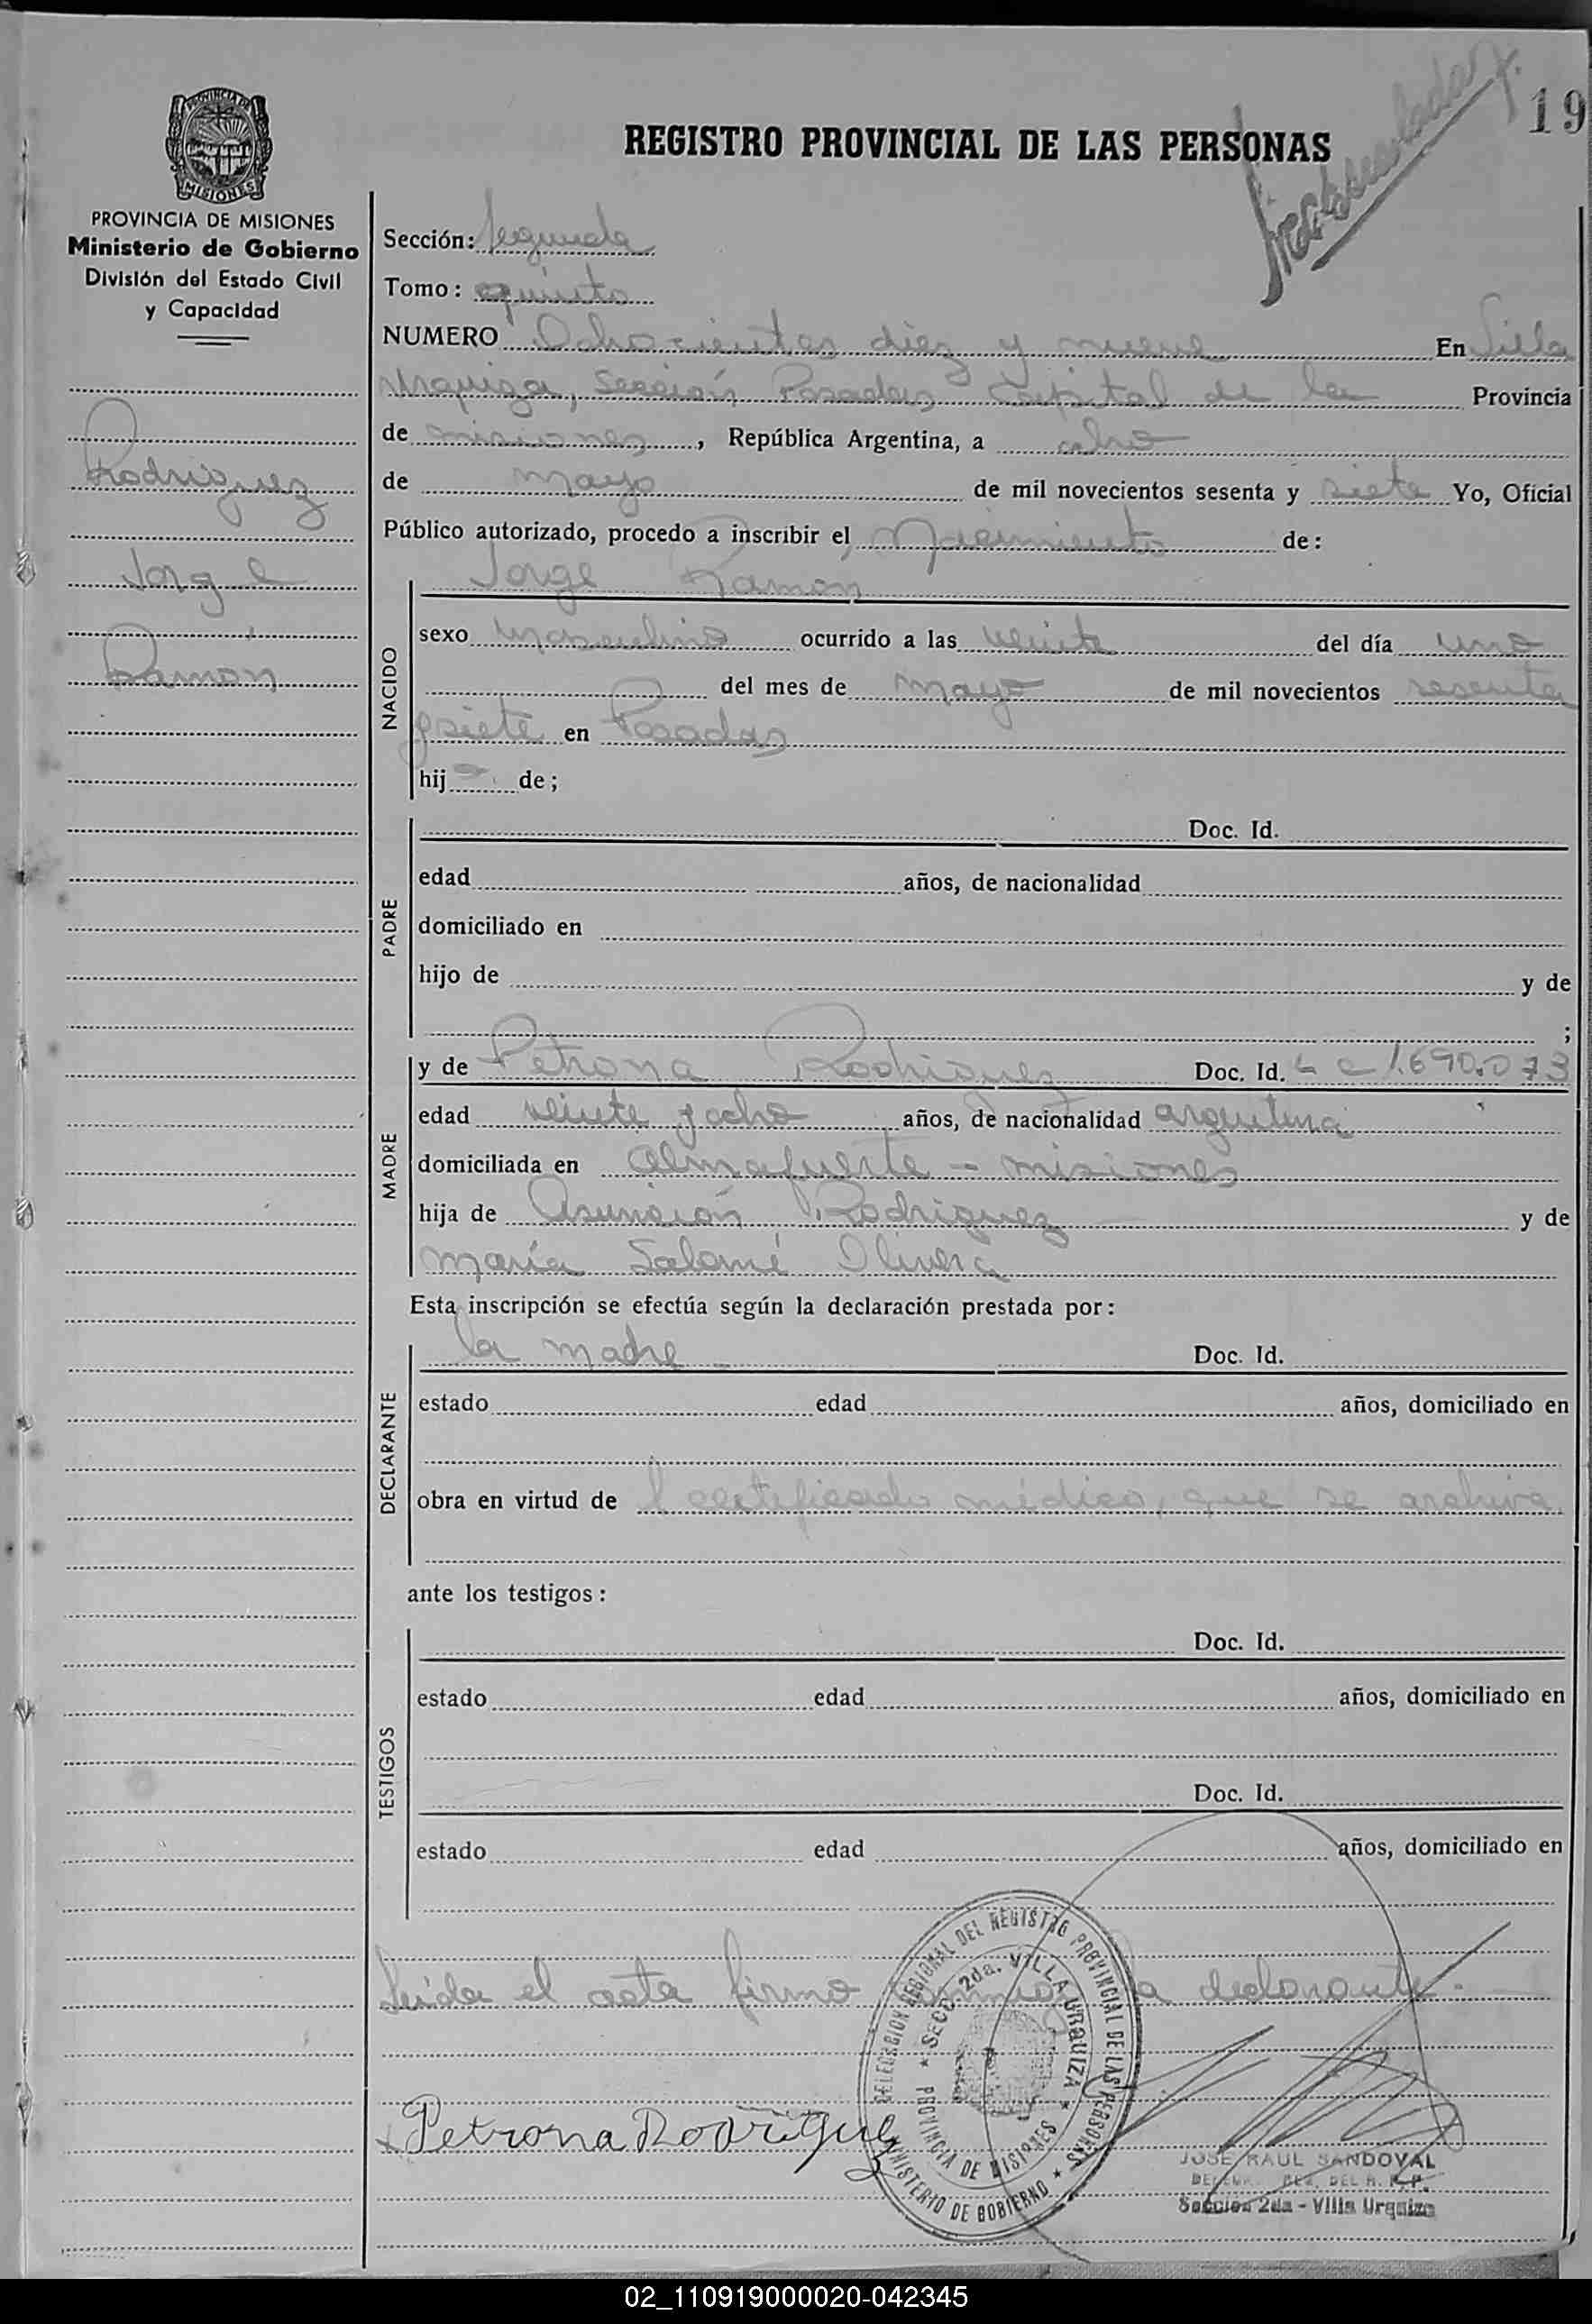 19
PROVINCIA DE
MISIONES
PROVINCIA DE MISIONES
Ministerio de Gobierno
División del Estado Civil
y Capacidad
Rodriguez
Jorge
Ramón
REGISTRO PROVINCIAL DE LAS PERSONAS
Sección: Segunda
Tomo: quinto
NUMERO Ochocientos diez y nueve En Villa
Urquiza, Sección Posadas Capital de la Provincia
de misiones, República Argentina, a ocho
de mayo de mil novecientos sesenta y siete Yo, Oficial
Público autorizado, procedo a inscribir el Nacimiento de:
Jorge Ramon
NACIDO
sexo masculino ocurrido a las veinte del día uno
del mes de mayo de mil novecientos sesenta
y siete en Posadas
hij o de;
PADRE
Doc. Id.
edad años, de nacionalidad
domiciliado en
hijo de y de
;
MADRE
y de Petrona Rodriguez Doc. Id. L C 1.690.073
edad veinte y ocho años, de nacionalidad argentina
domiciliada en Almafuerte - misiones
hija de Asunción Rodriguez y de
María Salomé Olivera
Esta inscripción se efectúa según la declaración prestada por:
DECLARANTE
la madre Doc. Id.
estado edad años, domiciliado en
obra en virtud de l certificado médico, que se archiva
ante los testigos:
TESTIGOS
Doc. Id.
estado edad años, domiciliado en
Doc. Id.
estado edad años, domiciliado en
Leída el acta firma conmigo la declarante.
DELEGACION REGIONAL DEL REGISTRO PROVINCIAL DE LAS PERSONAS
SECC. 2da. VILLA URQUIZA
PROVINCIA DE MISIONES
MINISTERIO DE GOBIERNO
Petrona Rodriguez
JOSE RAUL SANDOVAL
DEL R. P. P.
Sección 2da - Villa Urquiza
02_110919000020-042345